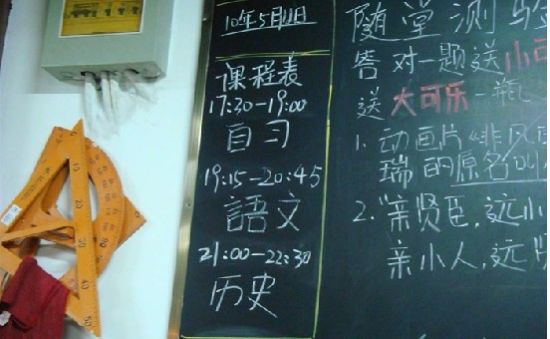 10年5月11日
课程表
17:30-19:00
自习
19:15-20:45
語文
21:00-22:30
历史
随堂测验
答对一题送小可
送大可乐一瓶
1.动画片"非凡
瑞的原名叫
2."亲贤臣,远小
亲小人,远贤
10
20
30
40
50